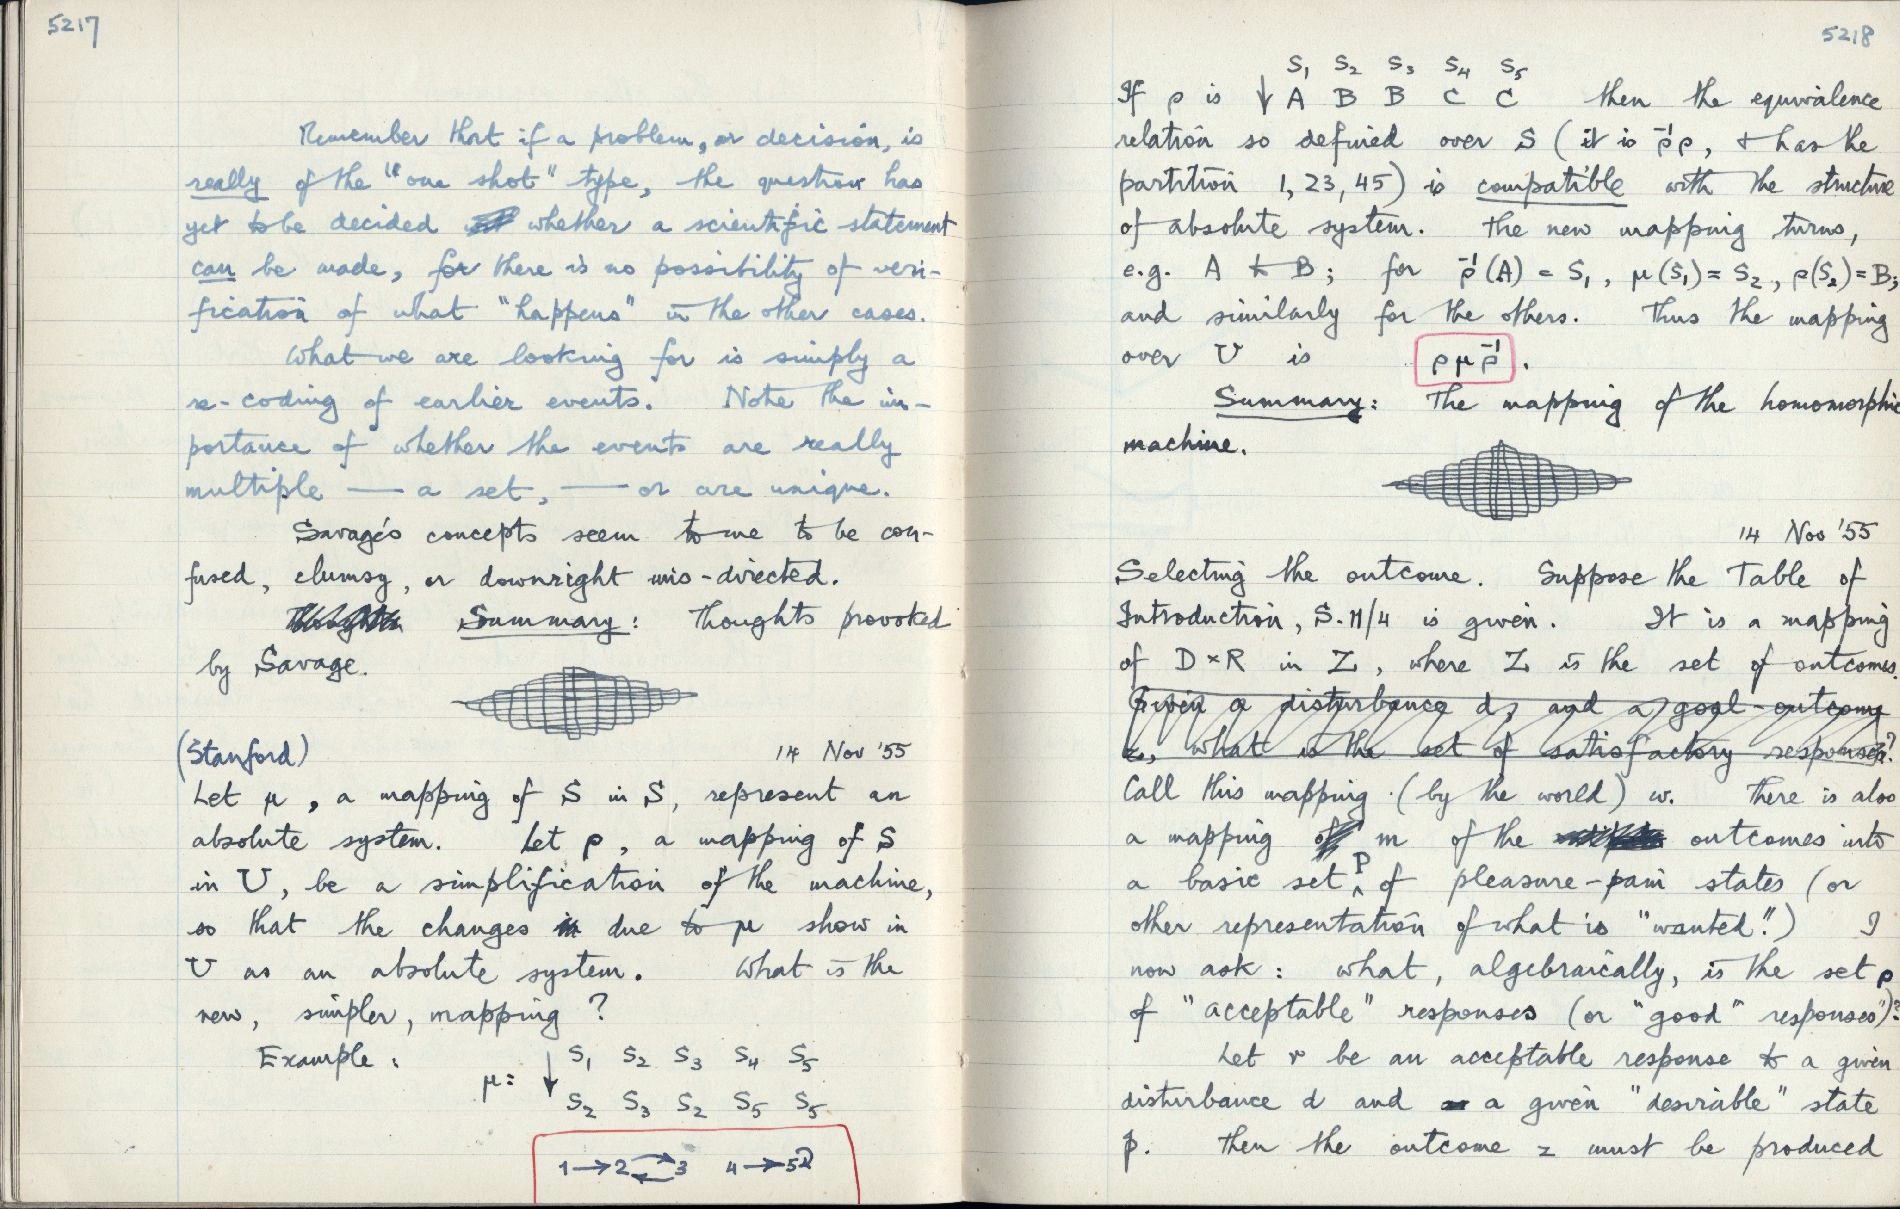 5217
Remember that if a problem, or decision, is
really of the "one shot" type, the question has
yet to be decided whether a scientific statement
can be made, for there is no possibility of veri-
fication of what "happens" in the other cases.
What we are looking for is simply a
re-coding of earlier events. Note the im-
portance of whether the events are really
multiple — a set, — or are unique.
Savage's concepts seem to me to be con-
fused, clumsy, or downright mis-directed.
Thoughts Summary: Thoughts provoked
by Savage.
(Stanford) 14 Nov '55
Let μ, a mapping of S in S, represent an
absolute system. Let ρ, a mapping of S
in U, be a simplification of the machine,
so that the changes in due to μ show in
U as an absolute system. What is the
new, simpler, mapping?
Example: μ: ↓ S₁ S₂ S₃ S₄ S₅
S₂ S₃ S₂ S₅ S₅
1→2⇄3 4→5⤸
5218
S₁ S₂ S₃ S₄ S₅
If ρ is ↓ A B B C C then the equivalence
relation so defined over S (it is ρ⁻¹ρ, & has the
partition 1, 23, 45) is compatible with the structure
of absolute system. The new mapping turns,
e.g. A to B; for ρ⁻¹(A) = S₁, μ(S₁) = S₂, ρ(S₂) = B;
and similarly for the others. Thus the mapping
over U is ρμρ⁻¹.
Summary: The mapping of the homomorphic
machine.
14 Nov '55
Selecting the outcome. Suppose the Table of
Introduction, S.11/4 is given. It is a mapping
of D×R in Z, where Z is the set of outcomes.
Given a disturbance d, and a goal-outcome
z, what is the set of satisfactory responses?
Call this mapping (by the world) w. There is also
a mapping of m of the outcomes into
a basic set P of pleasure-pain states (or
other representation of what is "wanted".) I
now ask: what, algebraically, is the set ρ
of "acceptable" responses (or "good" responses")?
Let r be an acceptable response to a given
disturbance d and a given "desirable" state
p. Then the outcome z must be produced